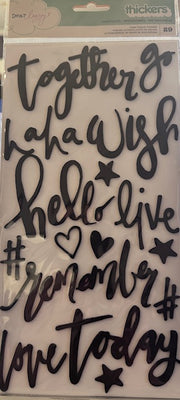 Dear Lizzy
thickers
89
together go
haha wish
hello live
#
remember
#
love today